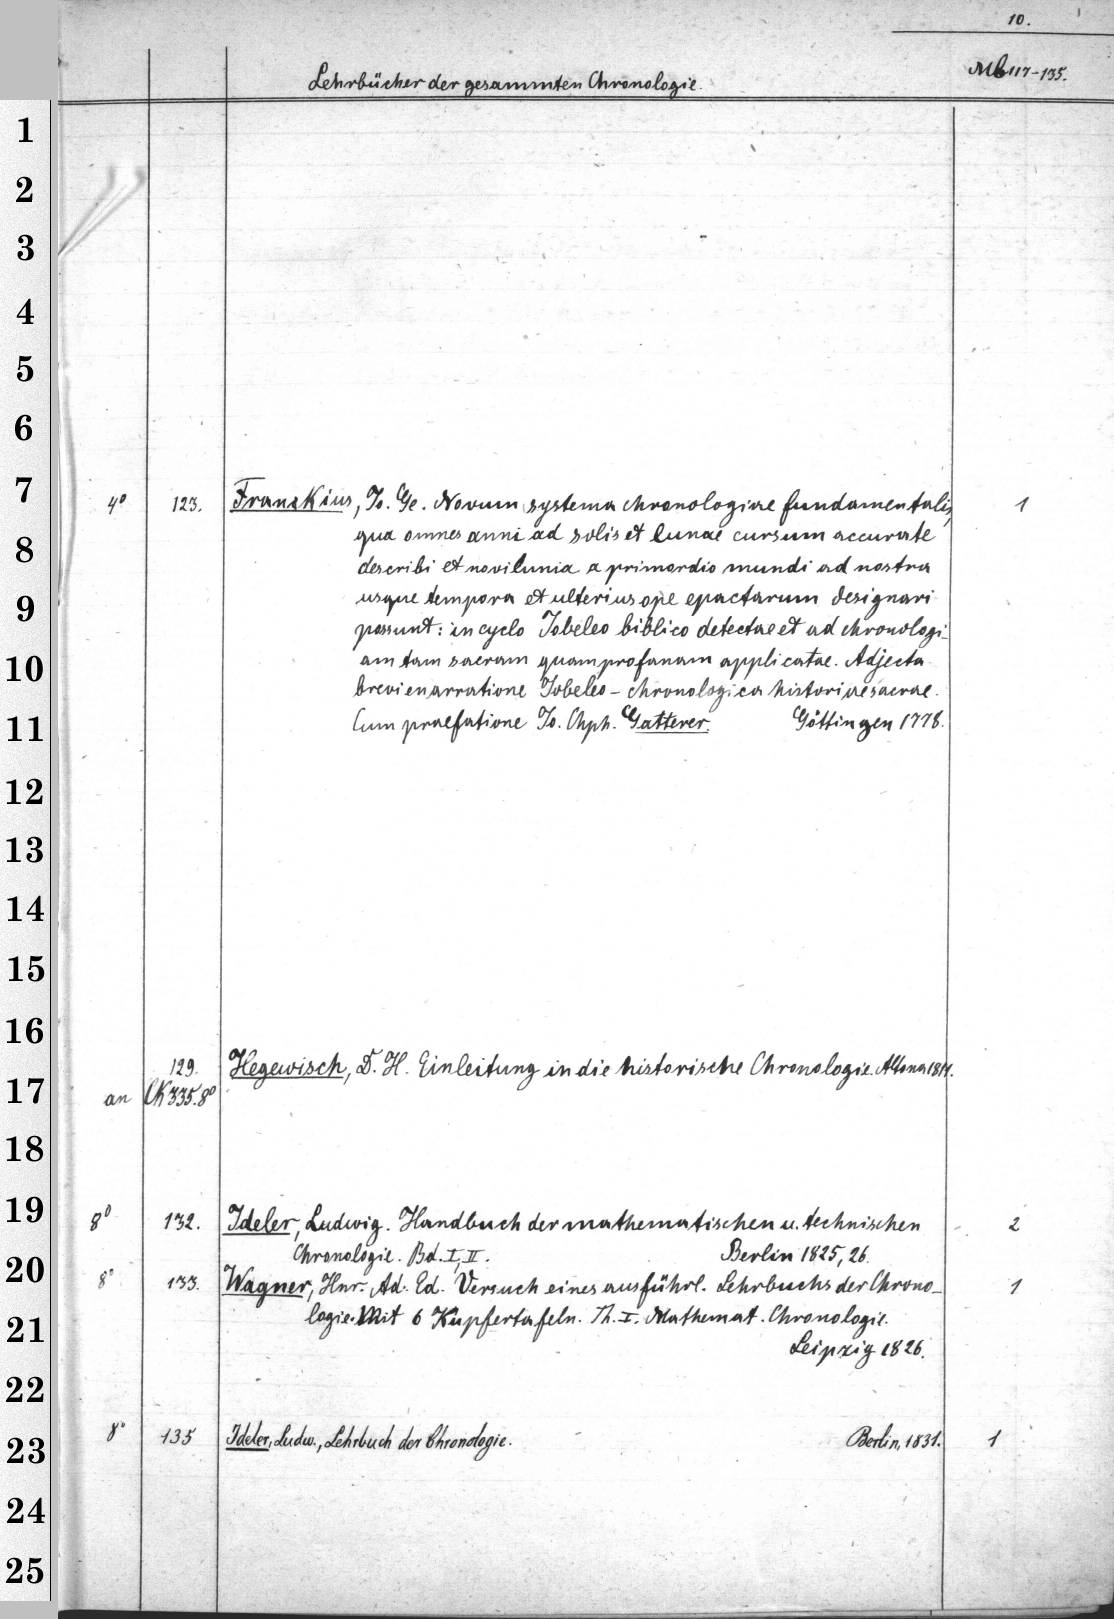 10.
Mb 117-135.
Lehrbücher der gesammten Chronologie.
1
2
3
4
5
6
7
4° 123. Franckius, Jo. Ge. Novum systema chronologiae fundamentalis, 1
qua omnes anni ad solis et lunae cursum accurate
8
describi et novilunia a primordio mundi ad nostra
usque tempora et ulterius ope epactarum designari
9
possunt: in cyclo Jobeleo biblico detectae et ad chronologi-
10
am tam sacram quam profanam applicatae. Adjecta
brevi enarratione Jobeleo-chronologica historiae sacrae.
11
Cum praefatione Jo. Chph. Gatterer. Göttingen 1778.
12
13
14
15
16
129. Hegewisch, D. H. Einleitung in die historische Chronologie. Altona 1811.
17
an CK 335. 8°
18
19
8° 132. Ideler, Ludwig. Handbuch der mathematischen u. technischen 2
Chronologie. Bd. I, II. Berlin 1825, 26.
20
8° 133. Wagner, Hnr. Ad. Ed. Versuch eines ausführl. Lehrbuchs der Chrono- 1
logie. Mit 6 Kupfertafeln. Th. I. Mathemat. Chronologie.
21
Leipzig 1826.
22
8° 135 Ideler, Ludw., Lehrbuch der Chronologie. Berlin, 1831. 1
23
24
25